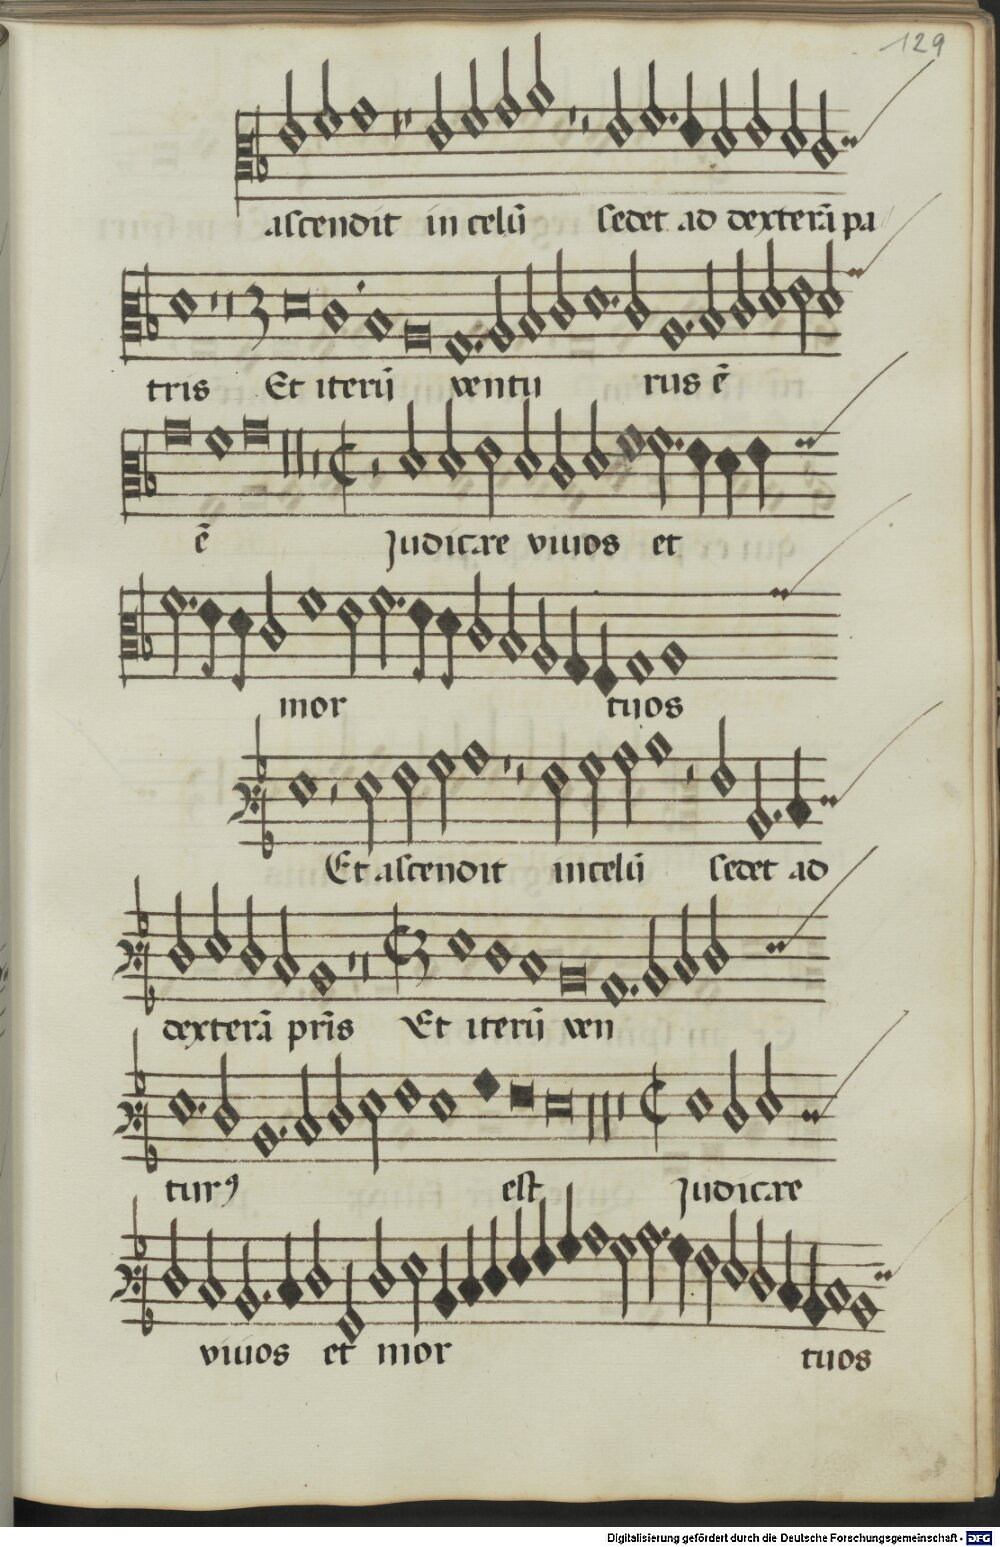 129
ascendit in celū sedet ad dexterā pa
tris Et iterū ventu rus ē
ē Judicare viuos et
mor tuos
Et ascendit in celū sedet ad
dexterā pr̄is Et iterū ven
turꝯ est Judicare
viuos et mor tuos
Digitalisierung gefördert durch die Deutsche Forschungsgemeinschaft - DFG